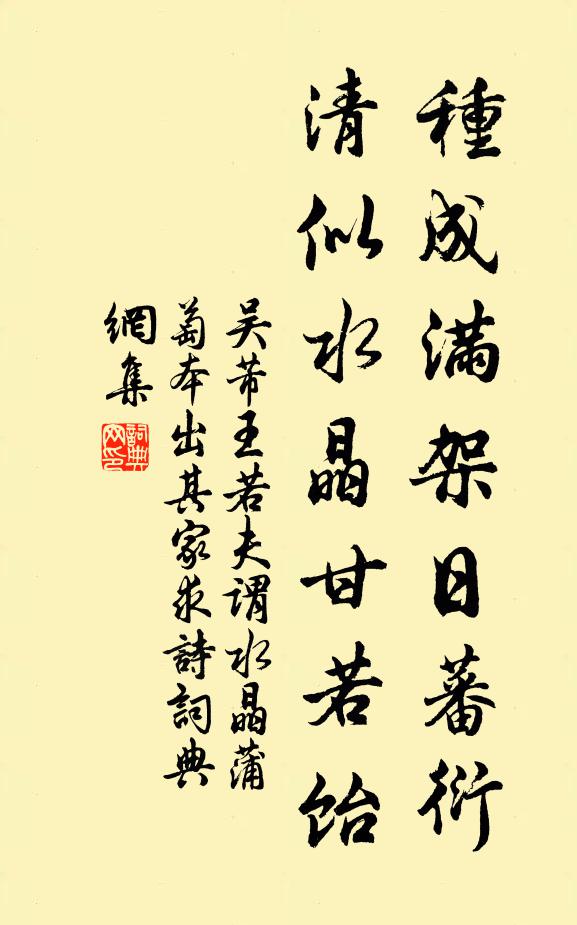 種成滿架日蕃衍
清似水晶甘若飴
吳芾王若夫謂水晶蒲
萄本出其家求詩詞典
網集
詞典網印